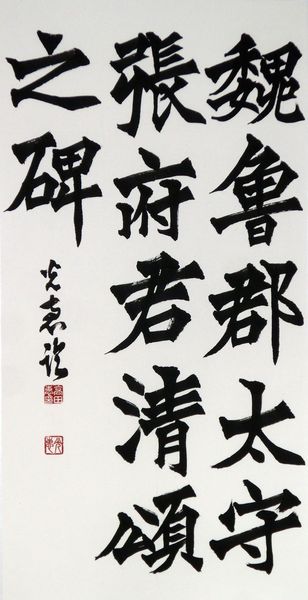 魏魯郡太守
張府君清頌
之碑